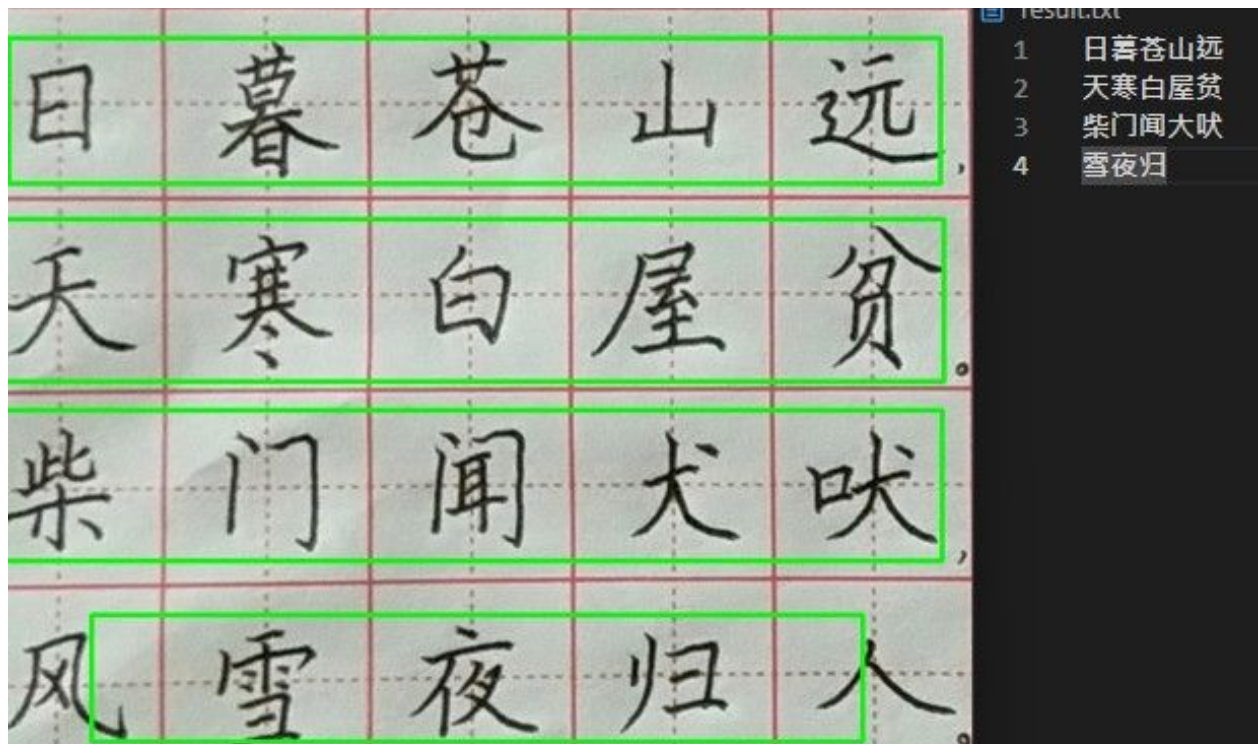 日暮苍山远，
天寒白屋贫。
柴门闻犬吠，
风雪夜归人。
result.txt
1 日暮苍山远
2 天寒白屋贫
3 柴门闻大吠
4 雪夜归